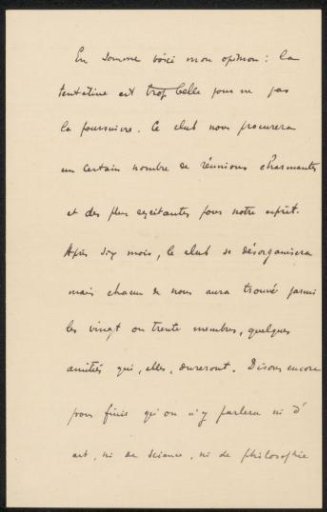 En somme voici mon opinion : la
tentative est trop belle pour ne pas
la poursuivre. Ce club nous procurera
un certain nombre de réunions charmantes
et des plus excitantes pour notre esprit.
Après six mois, le club se désorganisera
mais chacun de nous aura trouvé parmi
les vingt ou trente membres, quelques
amitiés qui, elles, dureront. Disons encore
pour finir qu'on n'y parlera ni d'
art, ni de science, ni de philosophie